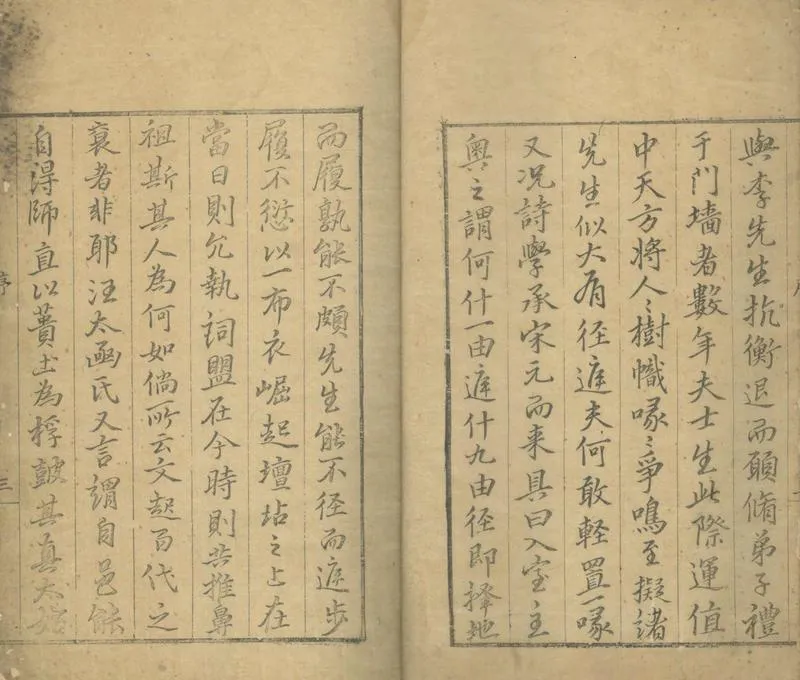 與李先生抗衡退而願脩弟子禮
于門墻者數年夫士生此際運值
中天方將人〻樹幟喙〻爭鳴至擬諸
先生似大有徑遮夫何敢軽置一喙
又况詩學承宋元而来具曰入室主
奥之謂何什一由遮什九由徑即擇地
而履孰能不頗先生能不徑而遮步
履不愆以一布衣崛起壇坫之上在
當日則允執詞盟在今時則共推鼻
祖斯其人為何如倘所云文起百代之
衰者非耶汪太函氏又言謂自邑能
自得師直以蕢土為桴鼓其真太
序
三